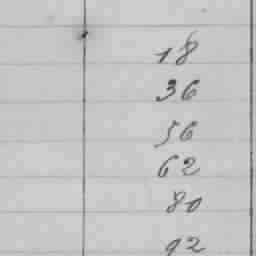 18
36
56
62
80
92